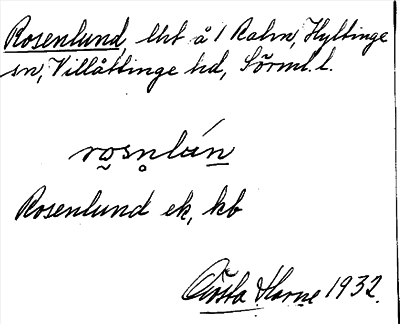 Rosenlund, lht å 1 Ralm, Hyltinge
sn, Villåttinge hd, Sörml. l.
rosnlún
Rosenlund ek, kb
Gösta Harne 1932.